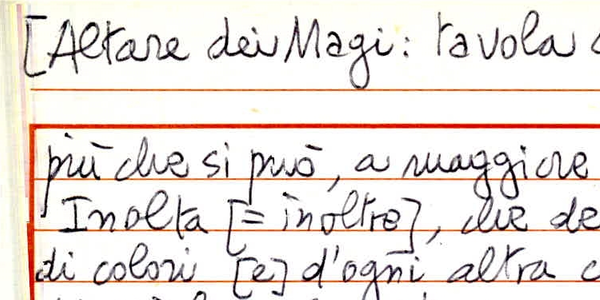 [Altare dei Magi: tavola
più che si può, a maggiore
Inolta [= inoltre], che de
di colori [e] d'ogni altra c